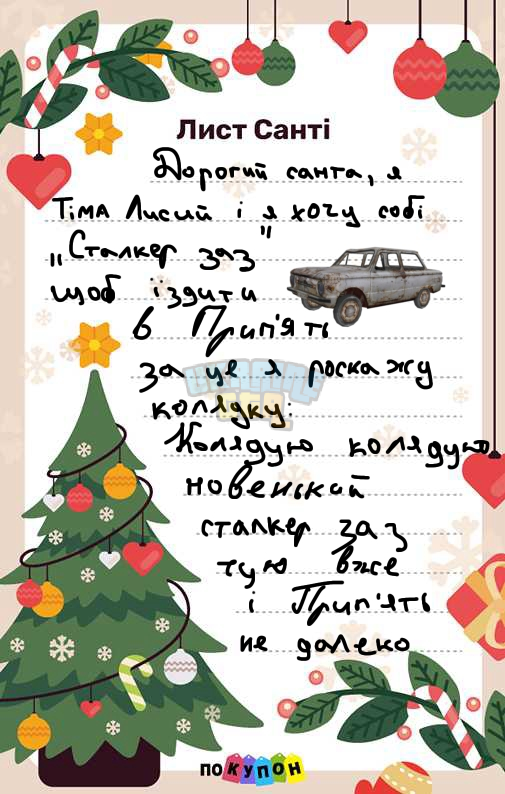 Лист Санті
Дорогий санта, я
Тіма Лисий і я хочу собі
„Сталкер заз"
щоб їздити
в Прип'ять
за це я роскажу
колядку:
Колядую колядую
новенький
сталкер заз
чую вже
і Прип'ять
не далеко
ПОКУПОН